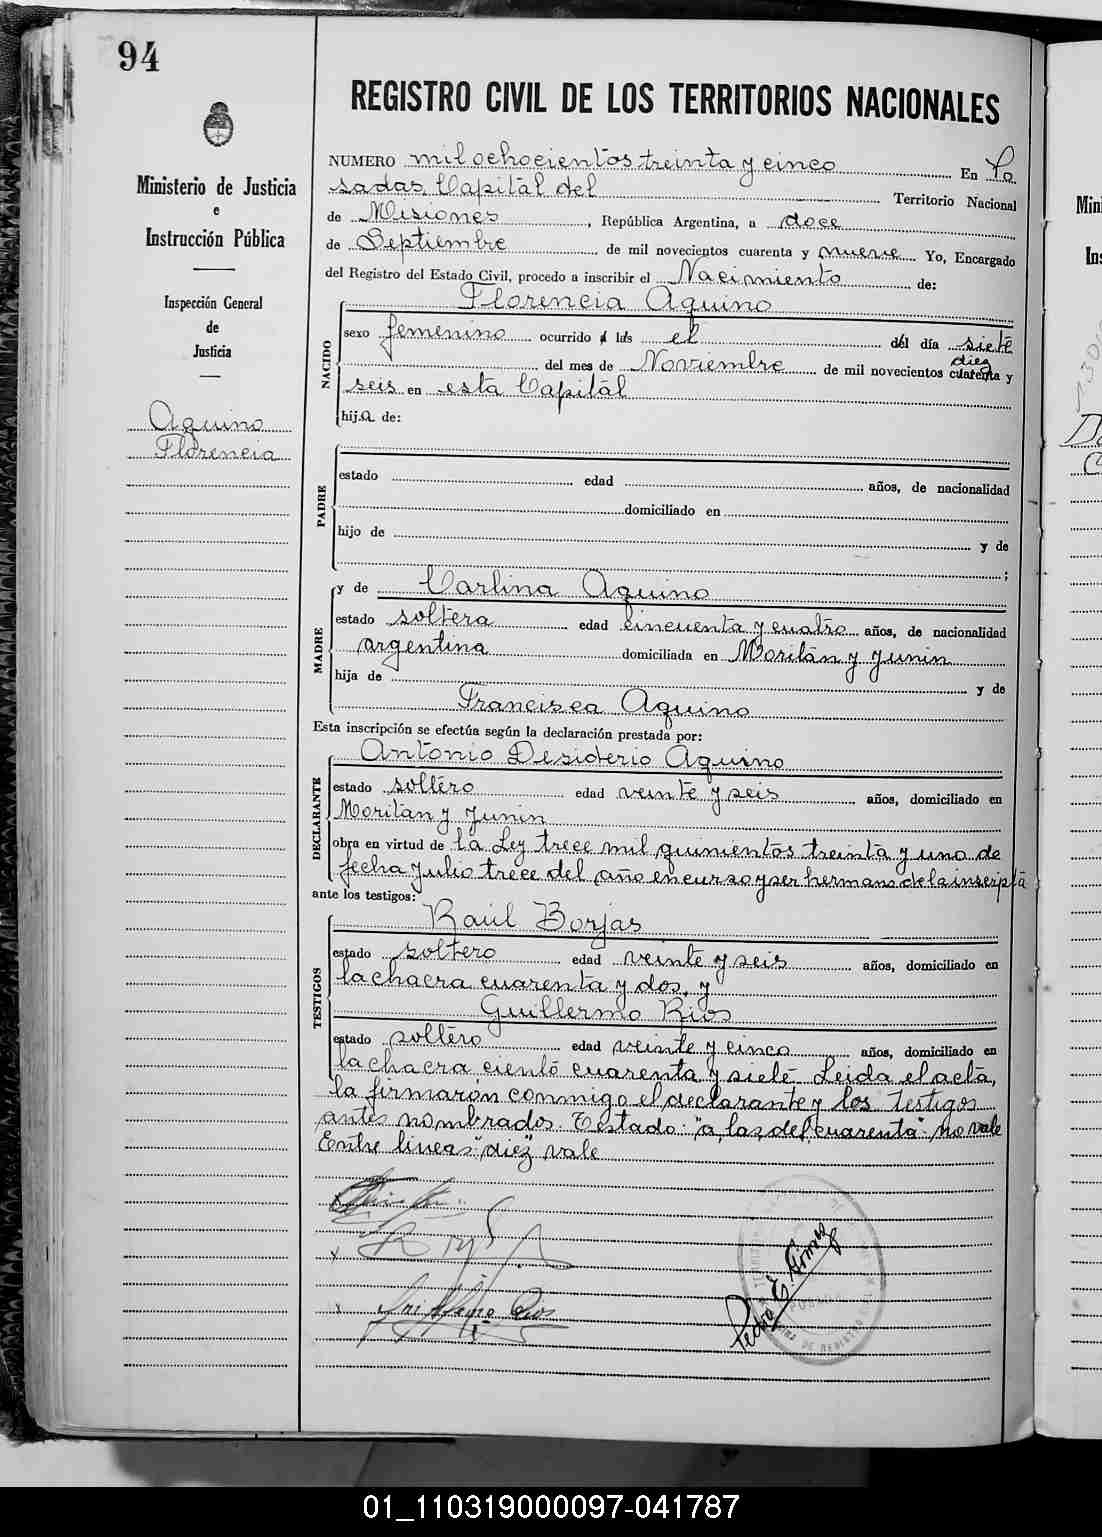 94
REGISTRO CIVIL DE LOS TERRITORIOS NACIONALES
Ministerio de Justicia
e
Instrucción Pública
Inspección General
de
Justicia
Aquino
Florencia
NUMERO mil ochocientos treinta y cinco En Po
sadas, Capital del Territorio Nacional
de Misiones, República Argentina, a doce
de Septiembre de mil novecientos cuarenta y nueve Yo, Encargado
del Registro del Estado Civil, procedo a inscribir el Nacimiento de:
NACIDO
Florencia Aquino
sexo femenino ocurrido a las el del día siete
diez
del mes de Noviembre de mil novecientos cuarenta y
seis en esta Capital
hija de:
PADRE
estado edad años, de nacionalidad
domiciliado en
hijo de y de
;
MADRE
y de Carlina Aquino
estado soltera edad cincuenta y cuatro años, de nacionalidad
argentina domiciliada en Morilán y Junin
hija de y de
Francisca Aquino
Esta inscripción se efectúa según la declaración prestada por:
DECLARANTE
Antonio Desiderio Aquino
estado soltero edad veinte y seis años, domiciliado en
Morilan y Junin
obra en virtud de la Ley trece mil quinientos treinta y uno de
fecha Julio trece del año en curso y ser hermano de la inscripta
ante los testigos:
TESTIGOS
Raúl Borjas
estado soltero edad veinte y seis años, domiciliado en
la chacra cuarenta y dos, y
Guillermo Rios
estado soltero edad veinte y cinco años, domiciliado en
la chacra ciento cuarenta y siete. Leida el acta,
la firmarón conmigo el declarante y los testigos
antes nombrados. Testado: "a, las, del, cuarenta" no vale
Entre lineas "diez" vale
Guillermo Rios
Pedro E. Gimez
01_110319000097-041787